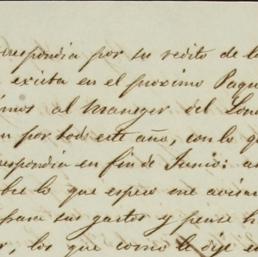 respondia por su redito de l
exista en el proximo Paque
imos al Manager del Lon
n por todo este año, con lo q
respondia en fin de Junio: a
bre lo que espero me avisa
para sus gastos y pense h
r, los que como le dije en